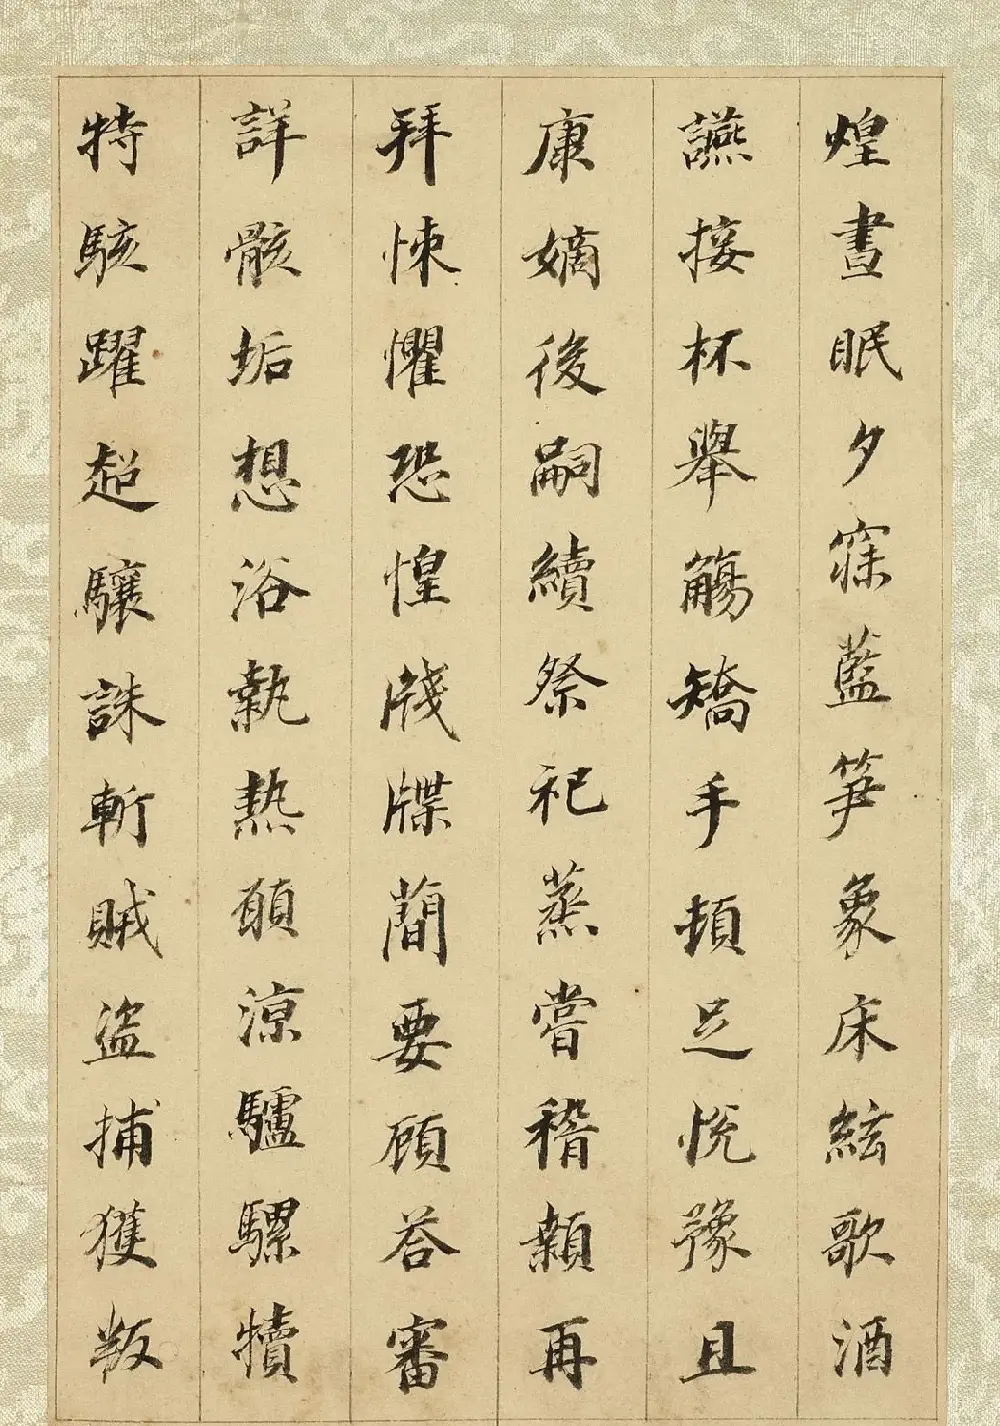 煌晝眠夕寐藍笋象床絃歌酒
讌接杯舉觴矯手頓足悅豫且
康嫡後嗣續祭祀蒸嘗稽顙再
拜悚懼恐惶牋牒蕑要顧荅審
詳骸垢想浴執熱願涼驢騾犢
特駭躍超驤誅斬賊盜捕獲叛